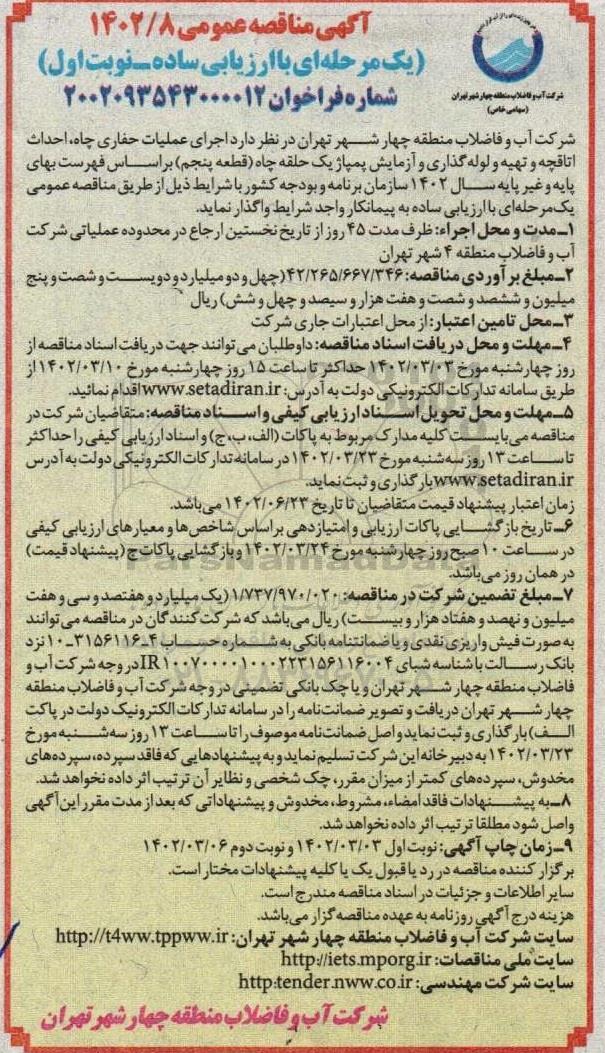 آگهی مناقصه عمومی ۱۴۰۲/۸
(یک مرحله‌ای با ارزیابی ساده_نوبت اول)
شماره فراخوان ۲۰۰۲۰۹۳۵۴۳۰۰۰۰۱۲
شرکت آب و فاضلاب منطقه چهار شهر تهران
(سهامی خاص)
شرکت آب و فاضلاب منطقه چهار شهر تهران در نظر دارد اجرای عملیات حفاری چاه، احداث
اتاقچه و تهیه و لوله گذاری و آزمایش پمپاژ یک حلقه چاه (قطعه پنجم) براساس فهرست بهای
پایه و غیر پایه سال ۱۴۰۲ سازمان برنامه و بودجه کشور با شرایط ذیل از طریق مناقصه عمومی
یک مرحله‌ای با ارزیابی ساده به پیمانکار واجد شرایط واگذار نماید.
۱_مدت و محل اجراء: ظرف مدت ۴۵ روز از تاریخ نخستین ارجاع در محدوده عملیاتی شرکت
آب و فاضلاب منطقه ۴ شهر تهران
۲_مبلغ برآوردی مناقصه: ۴۲/۲۶۵/۶۶۷/۳۴۶ (چهل و دو میلیارد و دویست و شصت و پنج
میلیون و ششصد و شصت و هفت هزار و سیصد و چهل و شش) ریال
۳_محل تامین اعتبار: از محل اعتبارات جاری شرکت
۴_مهلت و محل دریافت اسناد مناقصه: داوطلبان می‌توانند جهت دریافت اسناد مناقصه از
روز چهارشنبه مورخ ۱۴۰۲/۰۳/۰۳ حداکثر تا ساعت ۱۵ روز چهارشنبه مورخ ۱۴۰۲/۰۳/۱۰ از
طریق سامانه تدارکات الکترونیکی دولت به آدرس: www.setadiran.ir اقدام نمائید.
۵_مهلت و محل تحویل اسناد ارزیابی کیفی و اسناد مناقصه: متقاضیان شرکت در
مناقصه می‌بایست کلیه مدارک مربوط به پاکات (الف، ب، ج) و اسناد ارزیابی کیفی را حداکثر
تا ساعت ۱۳ روز سه شنبه مورخ ۱۴۰۲/۰۳/۲۳ در سامانه تدارکات الکترونیکی دولت به آدرس
www.setadiran.ir بارگذاری و ثبت نماید.
زمان اعتبار پیشنهاد قیمت متقاضیان تا تاریخ ۱۴۰۲/۰۶/۲۳ می‌باشد.
۶_تاریخ بازگشایی پاکات ارزیابی و امتیازدهی براساس شاخص‌ها و معیارهای ارزیابی کیفی
در ساعت ۱۰ صبح روز چهارشنبه مورخ ۱۴۰۲/۰۳/۲۴ و بازگشایی پاکات ج (پیشنهاد قیمت)
در همان روز می‌باشد.
۷_مبلغ تضمین شرکت در مناقصه: ۱/۷۳۷/۹۷۰/۰۲۰ (یک میلیارد و هفتصد و سی و هفت
میلیون و نهصد و هفتاد هزار و بیست) ریال می‌باشد که شرکت کنندگان در مناقصه می‌توانند
به صورت فیش واریزی نقدی و یا ضمانتنامه بانکی به شماره حساب ۴_۳۱۵۶۱۱۶_۱۰ نزد
بانک رسالت با شناسه شبای IR ۱۰۰۷۰۰۰۰۱۰۰۰۲۲۳۱۵۶۱۱۶۰۰۴ در وجه شرکت آب و
فاضلاب منطقه چهار شهر تهران و یا چک بانکی تضمینی در وجه شرکت آب و فاضلاب منطقه
چهار شهر تهران دریافت و تصویر ضمانت‌نامه را در سامانه تدارکات الکترونیک دولت در پاکت
الف) بارگذاری و ثبت نماید و اصل ضمانت‌نامه موصوف را تا ساعت ۱۳ روز سه شنبه مورخ
۱۴۰۲/۰۳/۲۳ به دبیرخانه این شرکت تسلیم نماید و به پیشنهادهایی که فاقد سپرده، سپرده‌های
مخدوش، سپرده‌های کمتر از میزان مقرر، چک شخصی و نظایر آن ترتیب اثر داده نخواهد شد.
۸_به پیشنهادات فاقد امضاء، مشروط، مخدوش و پیشنهاداتی که بعد از مدت مقرر این آگهی
واصل شود مطلقا ترتیب اثر داده نخواهد شد.
۹_زمان چاپ آگهی: نوبت اول ۱۴۰۲/۰۳/۰۳ و نوبت دوم ۱۴۰۲/۰۳/۰۶
برگزار کننده مناقصه در رد یا قبول یک یا کلیه پیشنهادات مختار است.
سایر اطلاعات و جزئیات در اسناد مناقصه مندرج است.
هزینه درج آگهی روزنامه به عهده مناقصه گزار می‌باشد.
سایت شرکت آب و فاضلاب منطقه چهار شهر تهران: http://t4ww.tppww.ir
سایت ملی مناقصات: http://iets.mporg.ir
سایت شرکت مهندسی: http:tender.nww.co.ir
شرکت آب و فاضلاب منطقه چهار شهر تهران
ParsNamadData